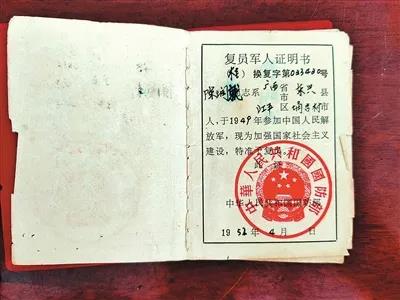 复员军人证明书
(桂)换复字第033430号
同志系广西省东兴县
市
江平区
市
人,于1949年参加中国人民解
放军,现为加强国家社会主义
建设,特准予复员。
此证
中华人民共和国国防部
中華人民共和國國防部
1952年4月 日